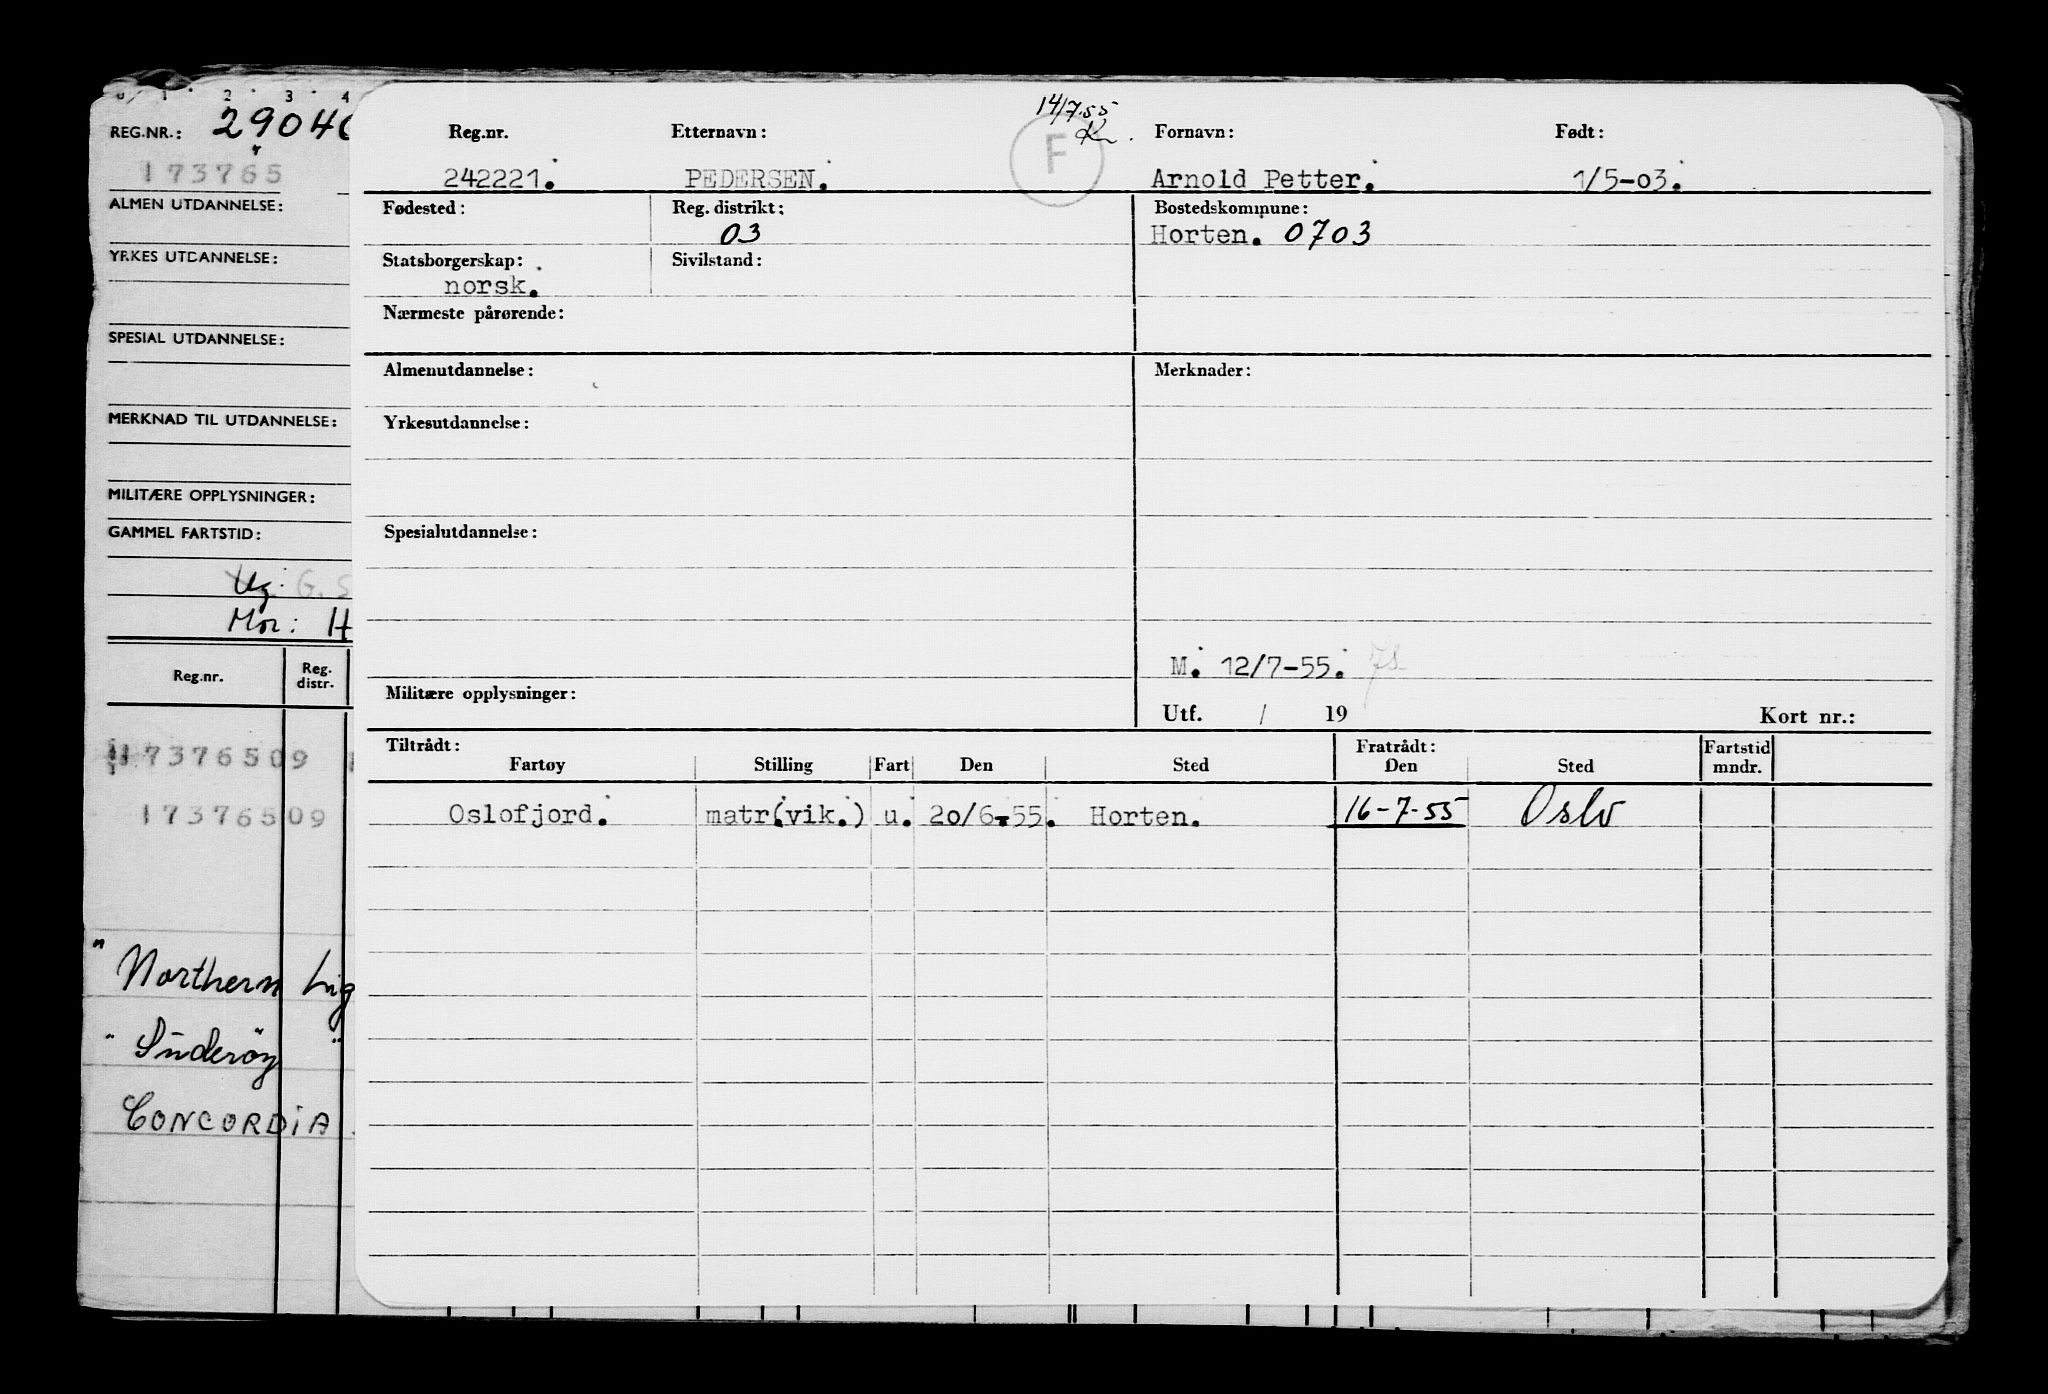 0 1 2 3 4
REG.NR.: 2904
173765
ALMEN UTDANNELSE:
YRKES UTDANNELSE:
SPESIAL UTDANNELSE:
MERKNAD TIL UTDANNELSE:
MILITÆRE OPPLYSNINGER:
GAMMEL FARTSTID:
G. S
Mor: H
Reg.nr. Reg. distr.
17376509
17376509
"Northern Lig
"Suderøy"
CONCORDIA
14/7.55
F
Reg.nr. Etternavn: Fornavn: Født:
242221. PEDERSEN. Arnold Petter. 1/5-03.
Fødested: Reg. distrikt: Bostedskommune:
03 Horten. 0703
Statsborgerskap: Sivilstand:
norsk.
Nærmeste pårørende:
Almenutdannelse: Merknader:
Yrkesutdannelse:
Spesialutdannelse:
M. 12/7-55.
Militære opplysninger:
Utf. / 19 Kort nr.:
Tiltrådt: Fratrådt: Fartstid
Fartøy Stilling Fart Den Sted Den Sted mndr.
Oslofjord. matr(vik.) u. 20/6-55. Horten. 16-7-55 Oslo